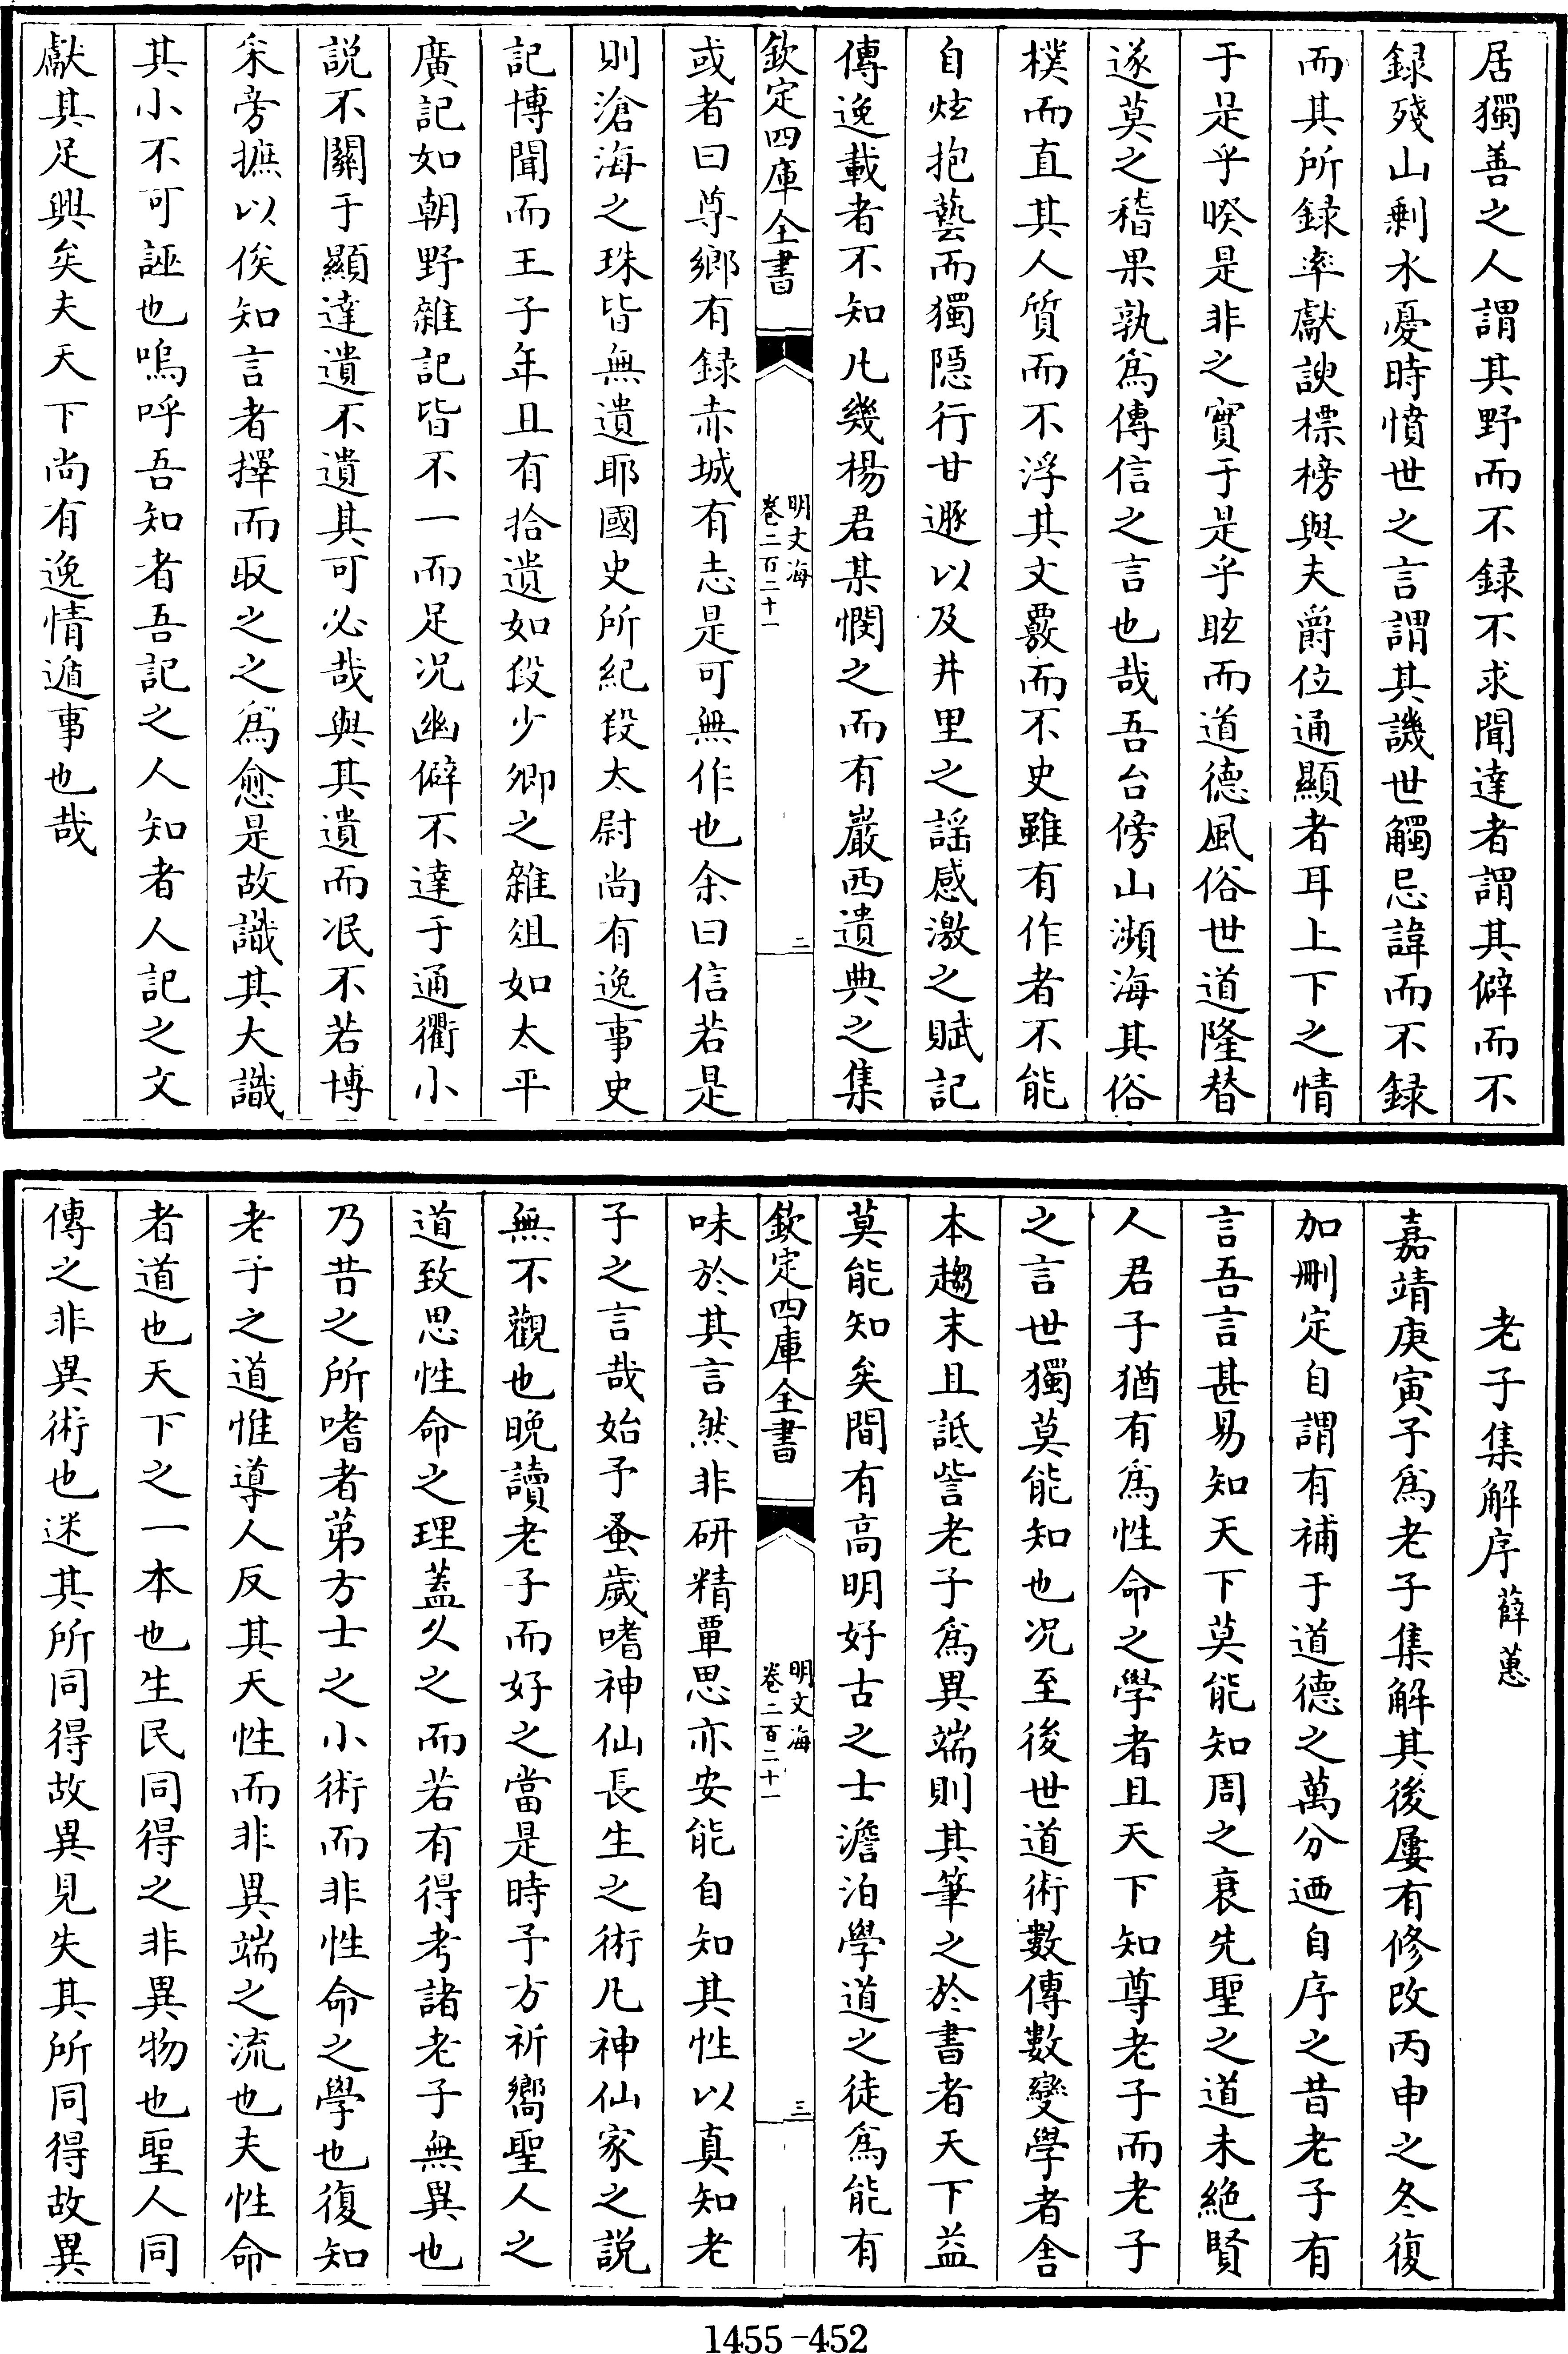 居獨善之人謂其野而不録不求聞達者謂其僻而不
録殘山剰水憂時憤世之言謂其譏世觸忌諱而不録
而其所録率獻諛標榜與夫爵位通顯者耳上下之情
于是乎暌是非之實于是乎眩而道德風俗世道隆替
遂莫之稽果孰為傳信之言也哉吾台傍山瀕海其俗
樸而直其人質而不浮其文覈而不史雖有作者不能
自炫抱藝而獨隠行甘遯以及井里之謡感激之賦記
傳逸載者不知凡幾楊君某憫之而有巖西遺典之集
欽定四庫全書
明文海
卷二百二十一
二
或者曰尊鄉有録赤城有志是可無作也余曰信若是
則滄海之珠皆無遺耶國史所紀段太尉尚有逸事史
記博聞而王子年且有拾遺如段少卿之雜俎如太平
廣記如朝野雜記皆不一而足况幽僻不達于通衢小
説不關于顯達遺不遺其可必哉與其遺而泯不若博
采旁摭以俟知言者擇而取之之為愈是故識其大識
其小不可誣也嗚呼吾知者吾記之人知者人記之文
獻其足興矣夫天下尚有逸情遁事也哉
老子集解序 薛蕙
嘉靖庚寅予為老子集解其後屢有修改丙申之冬復
加刪定自謂有補于道德之萬分迺自序之昔老子有
言吾言甚易知天下莫能知周之衰先聖之道未絶賢
人君子猶有為性命之學者且天下知尊老子而老子
之言世獨莫能知也况至後世道術數傳數變學者舎
本趨末且詆訾老子為異端則其筆之於書者天下益
莫能知矣間有高明好古之士澹泊學道之徒為能有
欽定四庫全書
明文海
卷二百二十一
三
味於其言然非研精覃思亦安能自知其性以真知老
子之言哉始予蚤歲嗜神仙長生之術凡神仙家之説
無不觀也晩讀老子而好之當是時予方祈嚮聖人之
道致思性命之理葢久之而若有得考諸老子無異也
乃昔之所嗜者第方士之小術而非性命之學也復知
老子之道惟導人反其天性而非異端之流也夫性命
者道也天下之一本也生民同得之非異物也聖人同
傳之非異術也迷其所同得故異見失其所同得故異
1455-452